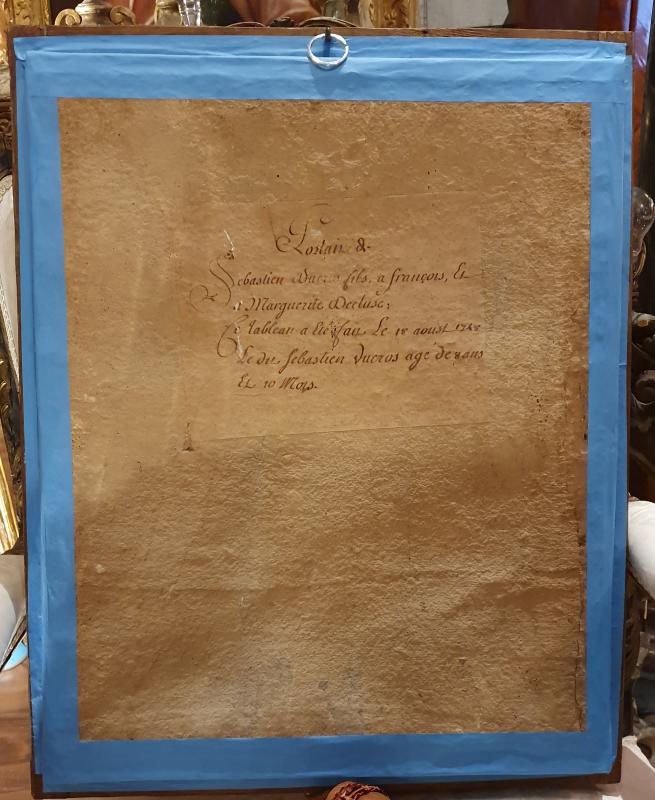 Postait de
Sebastien Ducros fils, a françois, Et
a Marguerite Decluse;
Ce tableau a Eté fait Le 18 aoust 1748
Le dit Sebastien Ducros agé de 8 ans
Et 10 Mois.